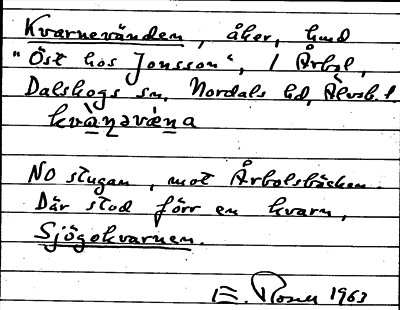 Kvarnevänden, åker, hmd
"Öst hos Jonsson", / Årbol,
Dalskogs sn, Nordals hd, Älvsb. l.
kvànəvèna
NO stugan, mot Årbolsbäcken.
Där stod förr en kvarn,
Sjögokvarnen.
E. Rosell 1963